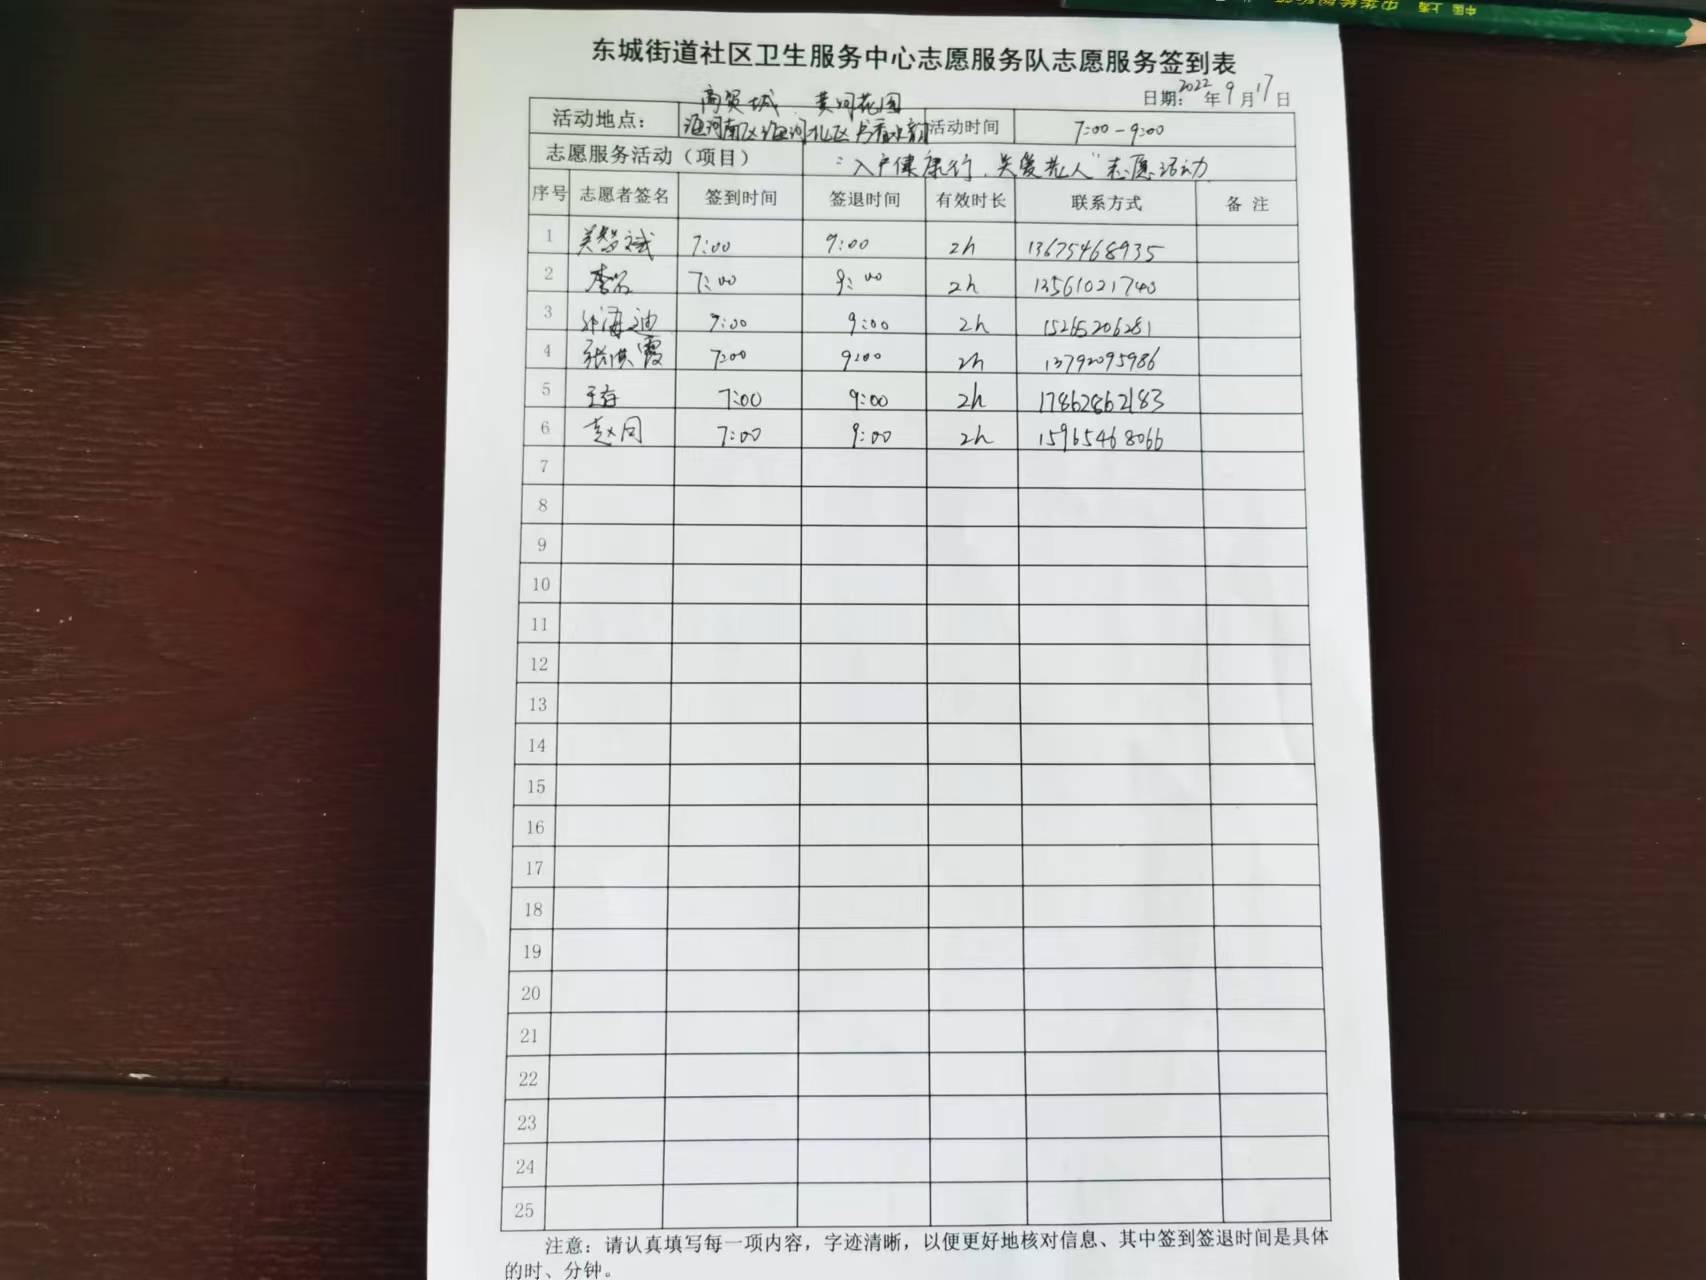 中国 上海 中华牌
东城街道社区卫生服务中心志愿服务队志愿服务签到表
日期: 2022年9月17日
商贸城 黄河花园
活动地点: 沍河南区 沍河北区 书香水韵 活动时间 7:00-9:00
志愿服务活动（项目） "入户健康行、关爱老人"志愿活动
序号 志愿者签名 签到时间 签退时间 有效时长 联系方式 备 注
1 7:00 9:00 2h 13675468935
2 李 7:00 9:00 2h 13561021740
3 海迪 7:00 9:00 2h 15265206281
4 张洪霞 7:00 9:00 2h 13792095986
5 王存 7:00 9:00 2h 17862862183
6 赵同 7:00 9:00 2h 15965468066
7
8
9
10
11
12
13
14
15
16
17
18
19
20
21
22
23
24
25
注意：请认真填写每一项内容，字迹清晰，以便更好地核对信息、其中签到签退时间是具体
的时、分钟。